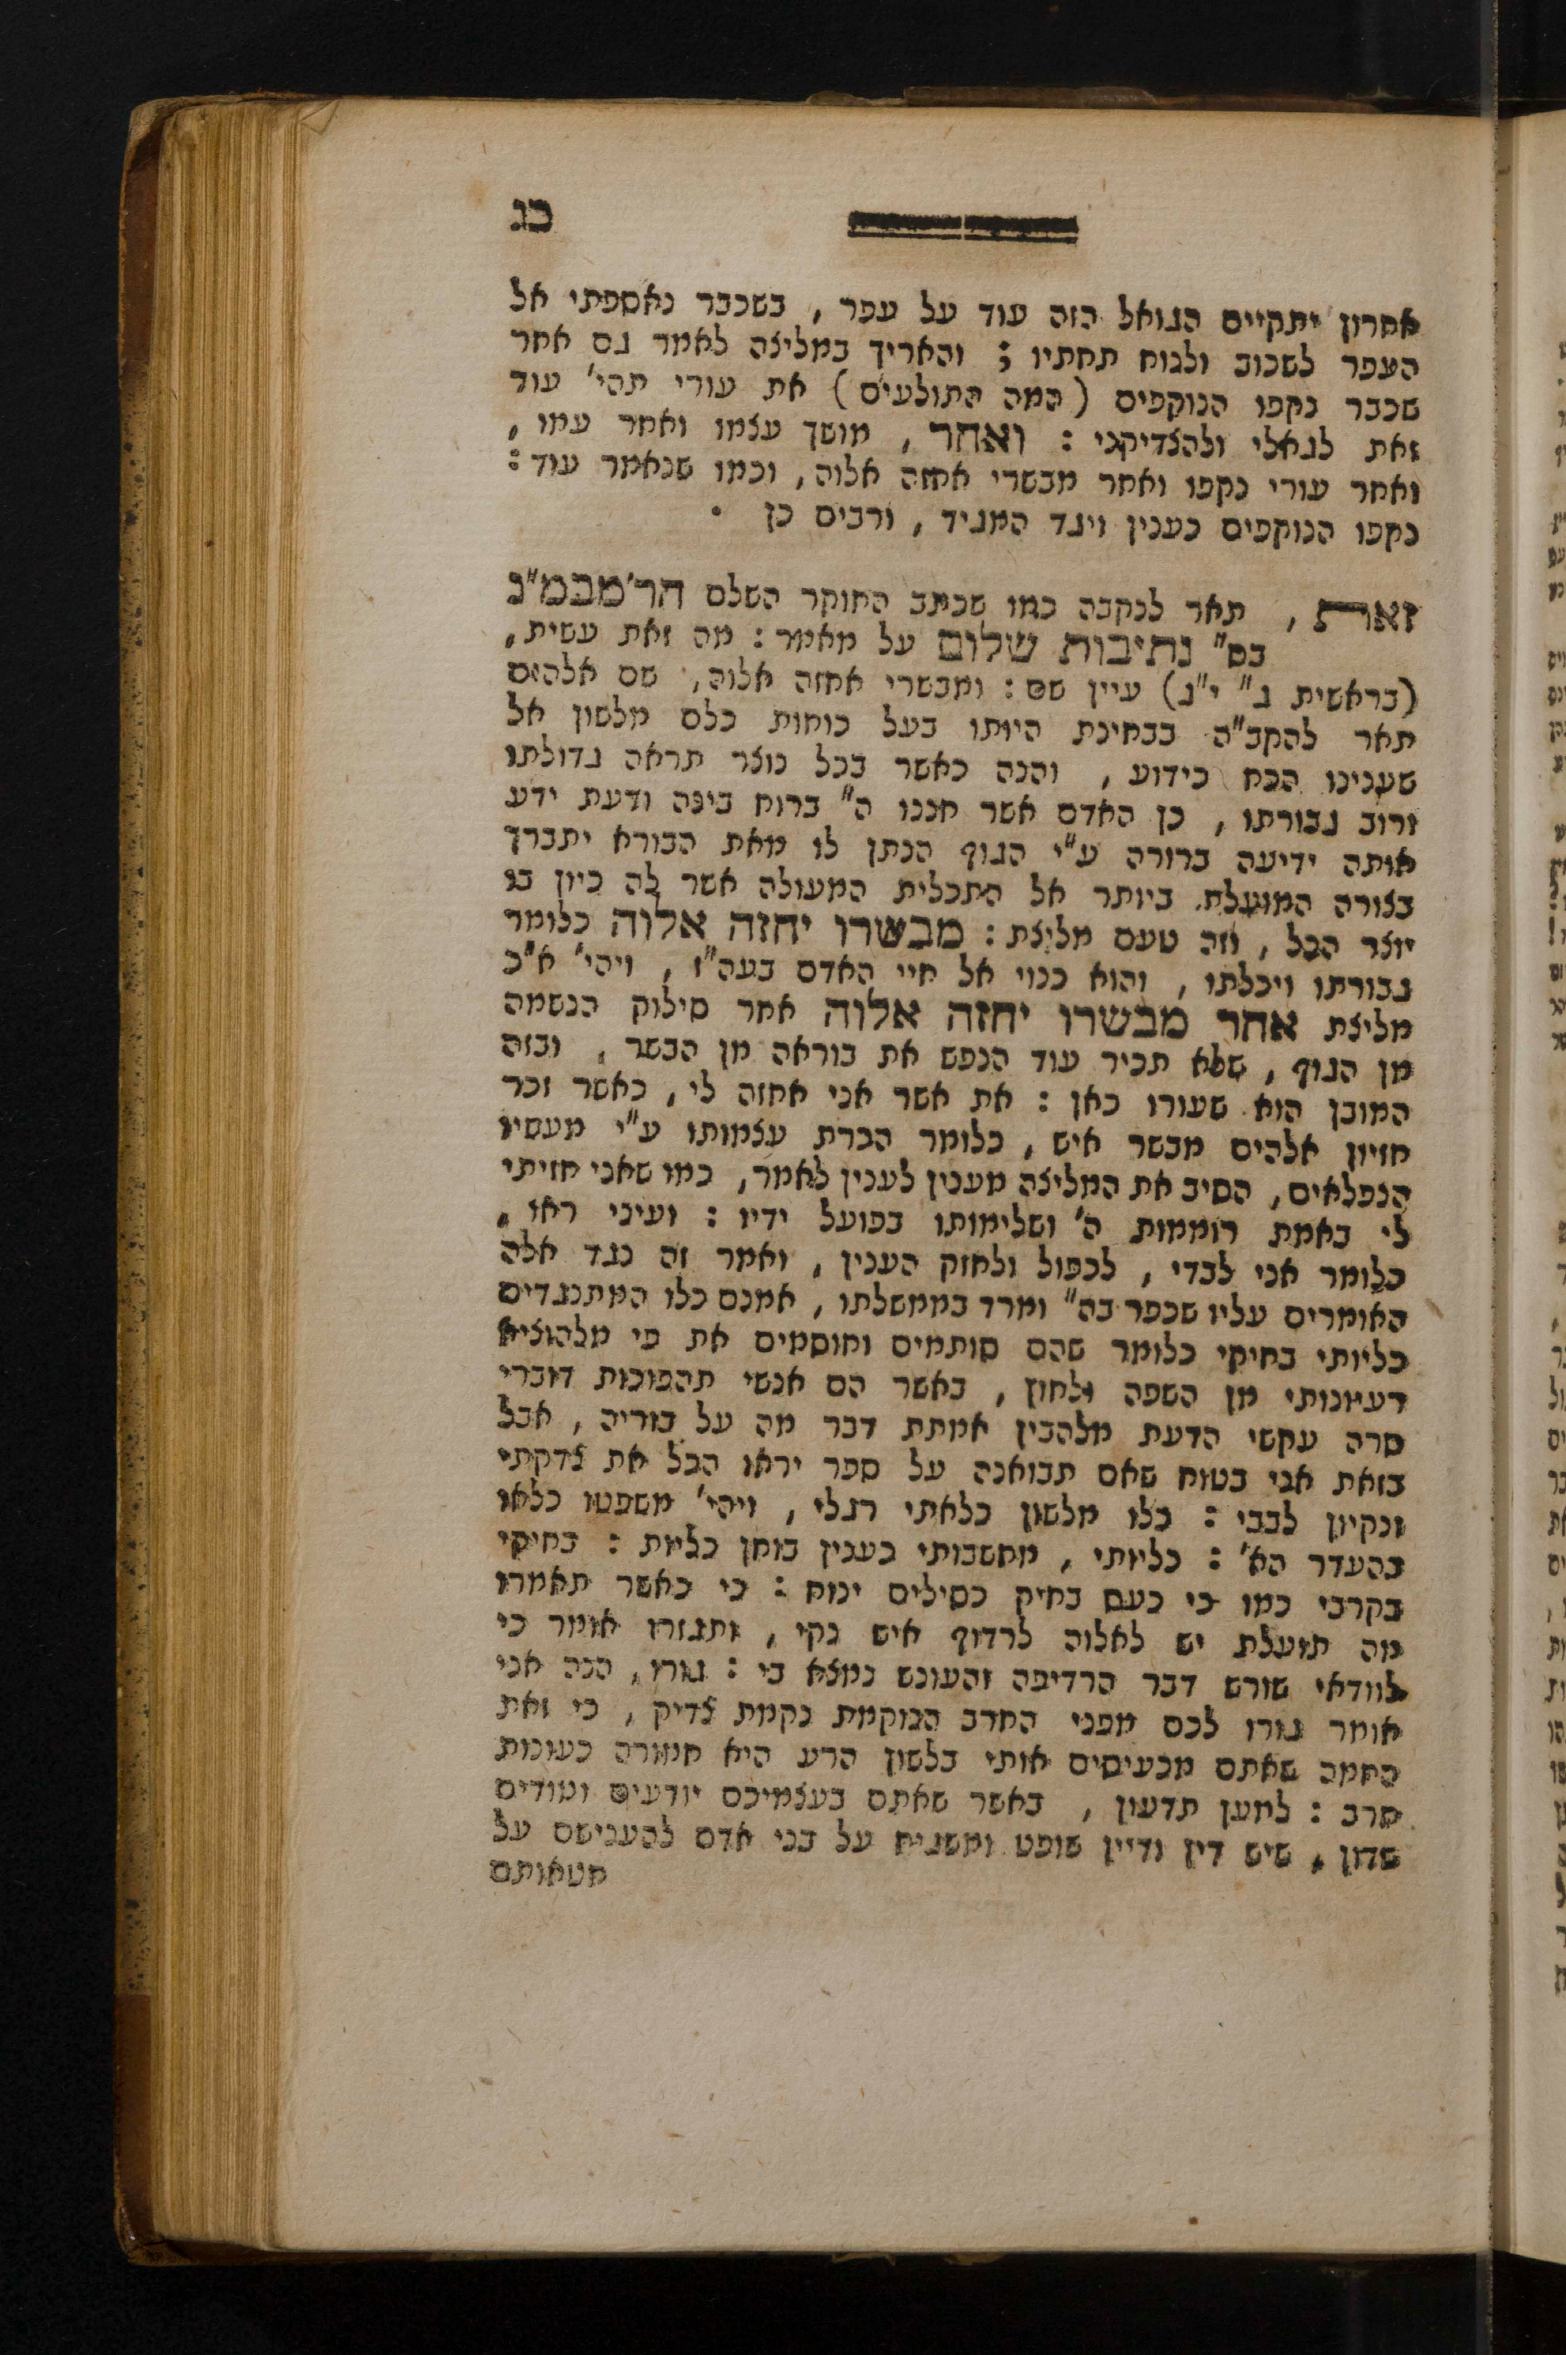 כג
אחרון יתקיים הגואל הזה עוד על עפר, בשכבר נאספתי אל
העפר לשכוב ולנוח תחתיו; והאריך במליצה לאמר גם אחר
שכבר נקפו הנוקפים (המה התולעים) את עורי תהי' עוד
זאת לגאלי ולהצדיקני: ואחר, מושך עצמו ואחר עמו,
ואחר עורי נקפו ואחר מבשרי אחזה אלוה, וכמו שנאמר עוד:
נקפו הנוקפים כענין ויגד המגיד, ורבים כן.
זאת, תאר לנקבה כמו שכתב החוקר השלם הר'מבמ"נ
בס" נתיבות שלום על מאמר: מה זאת עשית,
(בראשית ג" י"ג) עיין שם: ומבשרי אחזה אלוה, שם אלהים
תאר להקב"ה בבחינת היותו בעל כוחות כלם מלשון אל
שענינו הכח כידוע, והנה כאשר בכל נוצר תראה גדולתו
ורוב גבורתו, כן האדם אשר חננו ה" ברוח בינה ודעת ידע
אותה ידיעה ברורה ע"י הגוף הנתן לו מאת הבורא יתברך
בצורה המועלת ביותר אל התכלית המעולה אשר לה כיון בו
יוצר הכל, וזה טעם מליצת: מבשרו יחזה אלוה כלומר
גבורתו ויכלתו, והוא כנוי אל חיי האדם בעה"ז, ויהי' א"כ
מליצת אחר מבשרו יחזה אלוה אחר סילוק הנשמה
מן הגוף, שלא תכיר עוד הנפש את בוראה מן הבשר, ובזה
המובן הוא שעורו כאן: את אשר אני אחזה לי, כאשר זכר
חזיון אלהים מבשר איש, כלומר הכרת עצמותו ע"י מעשיו
הנפלאים, הסיב את המליצה מענין לענין לאמר, כמו שאני חזיתי
לי באמת רוממות ה' ושלימותו בפועל ידיו: ועיני ראו,
כלומר אני לבדי, לכפול ולחזק הענין, ואמר זה כנגד אלה
האומרים עליו שכפר בה" ומרד בממשלתו, אמנם כלו המתנגדים
כליותי בחיקי כלומר שהם סותמים וחוסמים את פי מלהוציא
רעיונותי מן השפה ולחוץ, באשר הם אנשי תהפוכות דוברי
סרה עקשי הדעת מלהבין אמתת דבר מה על בוריה, אבל
בזאת אני בטוח שאם תבואנה על ספר יראו הכל את צדקתי
ונקיון לבבי: כלו מלשון כלאתי רגלי, ויהי' משפטו כלאו
בהעדר הא': כליותי, מחשבותי כענין בוחן כליות: בחיקי
בקרבי כמו כי כעס בחיק כסילים ינוח: כי כאשר תאמרו
מה תועלת יש לאלוה לרדוף איש נקי, ותגזרו אומר כי
לוודאי שורש דבר הרדיפה והעונש נמצא בי: גורו, הנה אני
אומר גורו לכם מפני החרב הנוקמת נקמת צדיק, כי זאת
החמה שאתם מכעיסים אותי בלשון הרע היא חמורה כעונות
חרב: למען תדעון, באשר שאתם בעצמיכם יודעים ומודים
שדון, שיש דין ודיין שופט ומשגיח על בני אדם להענישם על
חטאותם